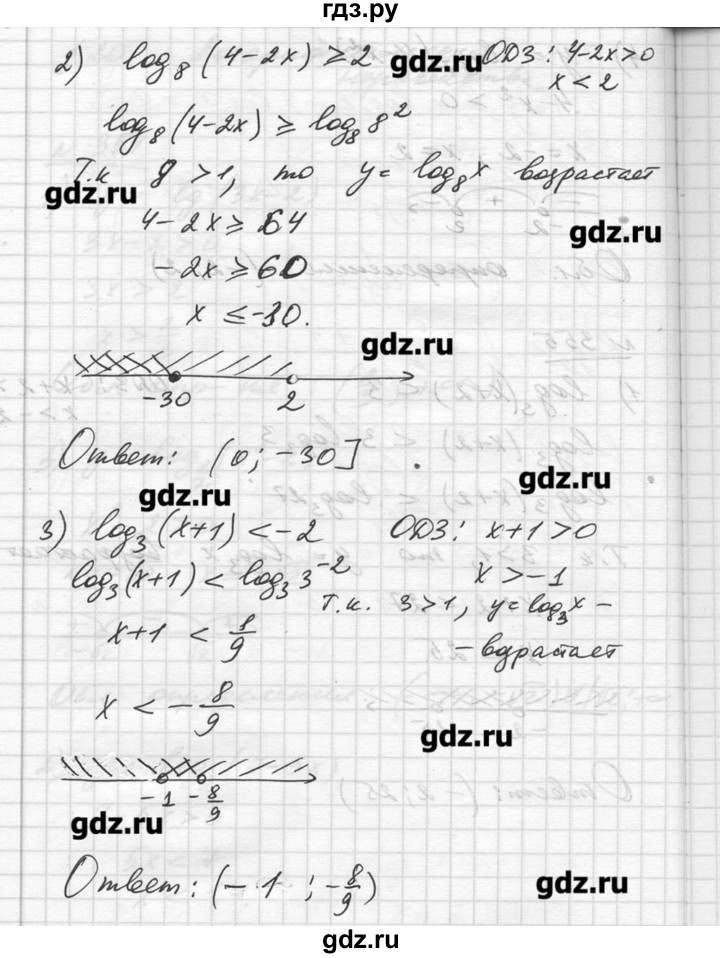 гдз.ру
2) log₈(4-2x) ≥ 2 ОДЗ: 4-2x>0
gdz.ru
x < 2
log₈(4-2x) ≥ log₈ 8²
Т.к 8 >1, то y = log₈x возрастает
gdz.ru
4-2x ≥ 64
gdz.ru
-2x ≥ 60
x ≤ -30.
gdz.ru
-30 2
Ответ: (0; -30]
gdz.ru
gdz.ru
3) log₃(x+1) < -2 ОДЗ: x+1 >0
log₃(x+1) < log₃ 3⁻² x > -1
т.к. 3>1, y=log₃x -
x+1 < 1/9
- вдрастает
x < - 8/9
gdz.ru
-1 - 8/9
gdz.ru
Ответ: (-1 ; -8/9)
gdz.ru
gdz.ru